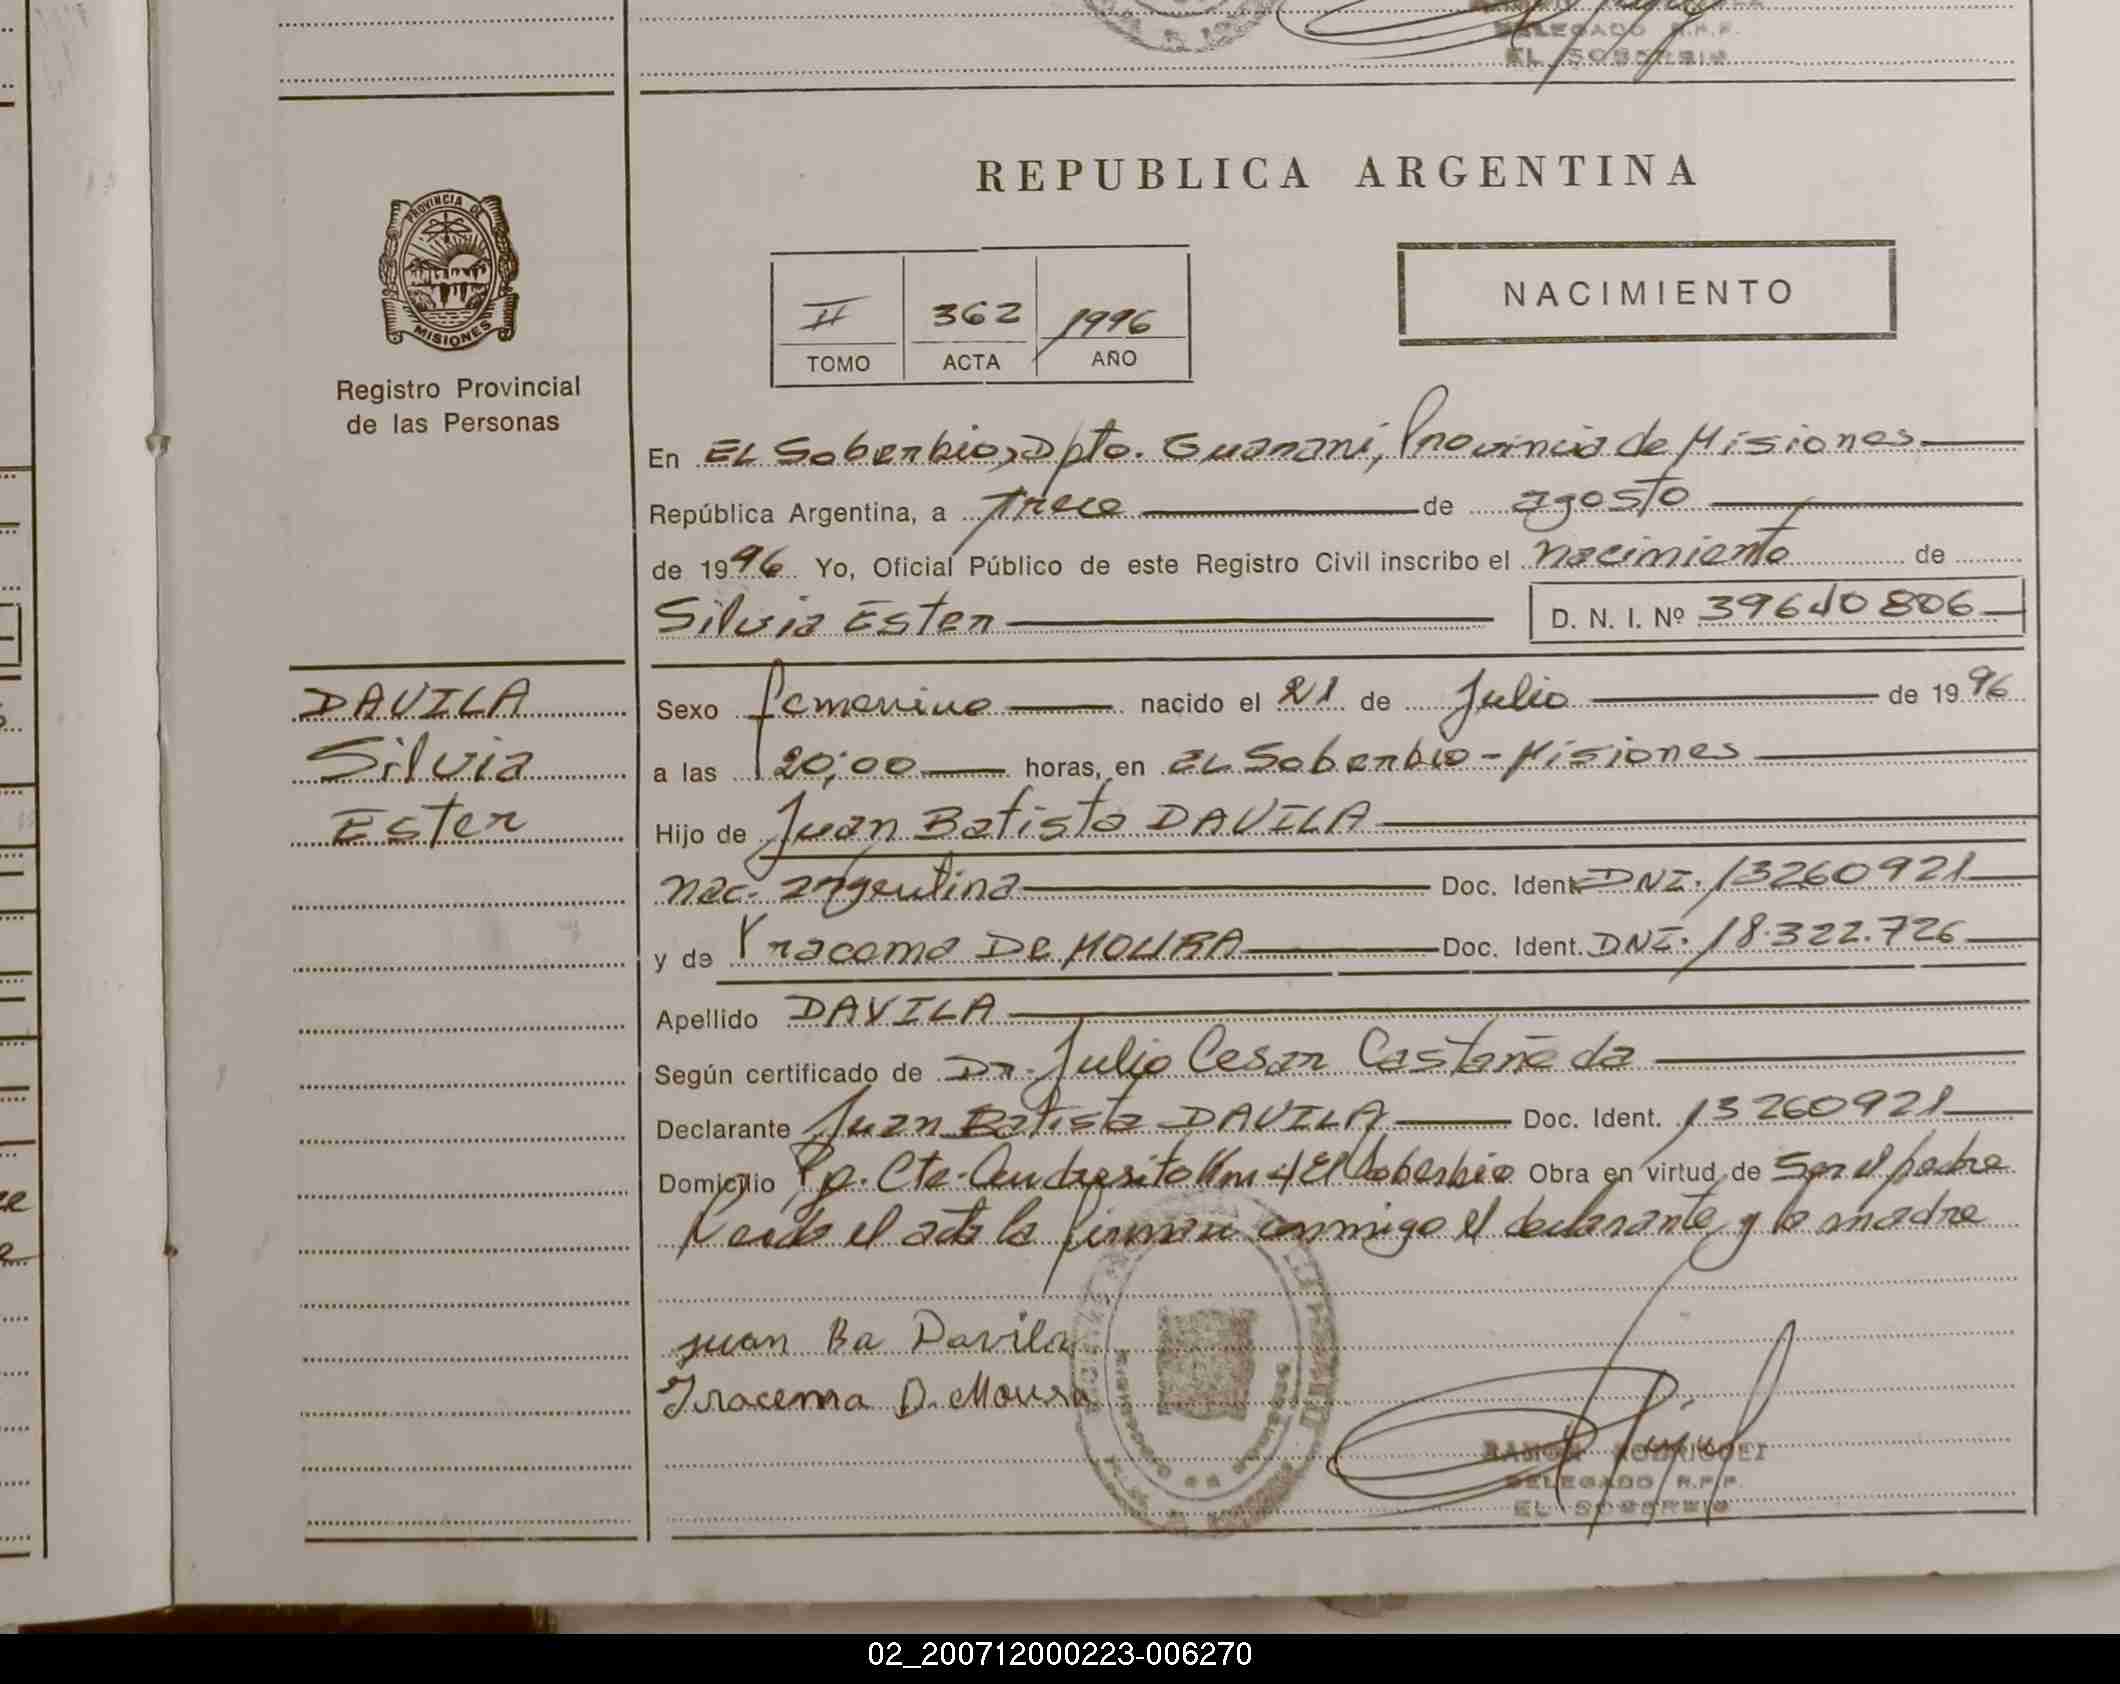 DELEGADO R.P.P.
EL SOBERBIO
REPUBLICA ARGENTINA
PROVINCIA DE
MISIONES
Registro Provincial
de las Personas
II 362 1996
TOMO ACTA AÑO
NACIMIENTO
En EL Soberbio, Dpto. Guarani, Provincia de Misiones
República Argentina, a trece de agosto
de 1996 Yo, Oficial Público de este Registro Civil inscribo el nacimiento de
Silvia Ester D. N. I. Nº 39640806
DAVILA
Silvia
Ester
Sexo femenino nacido el 21 de Julio de 1996
a las 20:00 horas, en EL Soberbio - Misiones
Hijo de Juan Batista DAVILA
nac. argentina Doc. Ident. DNI. 13260921
y de Yracema DE MOURA Doc. Ident. DNI. 18.322.726
Apellido DAVILA
Según certificado de Dr. Julio Cesar Castañeda
Declarante Juan Batista DAVILA Doc. Ident. 13260921
Domicilio Pje. Cte. Andresito Km 4 El Soberbio Obra en virtud de Ser el padre
Leida el acta la firman conmigo el declarante y la madre
juan Ba Davila
Iracema D. Moura
RAMON RODRIGUEZ
DELEGADO R.P.P.
EL SOBERBIO
02_200712000223-006270